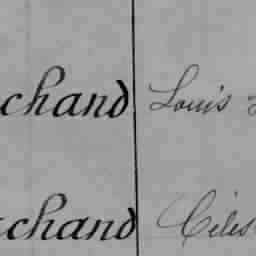 chand Louis
chand Céles